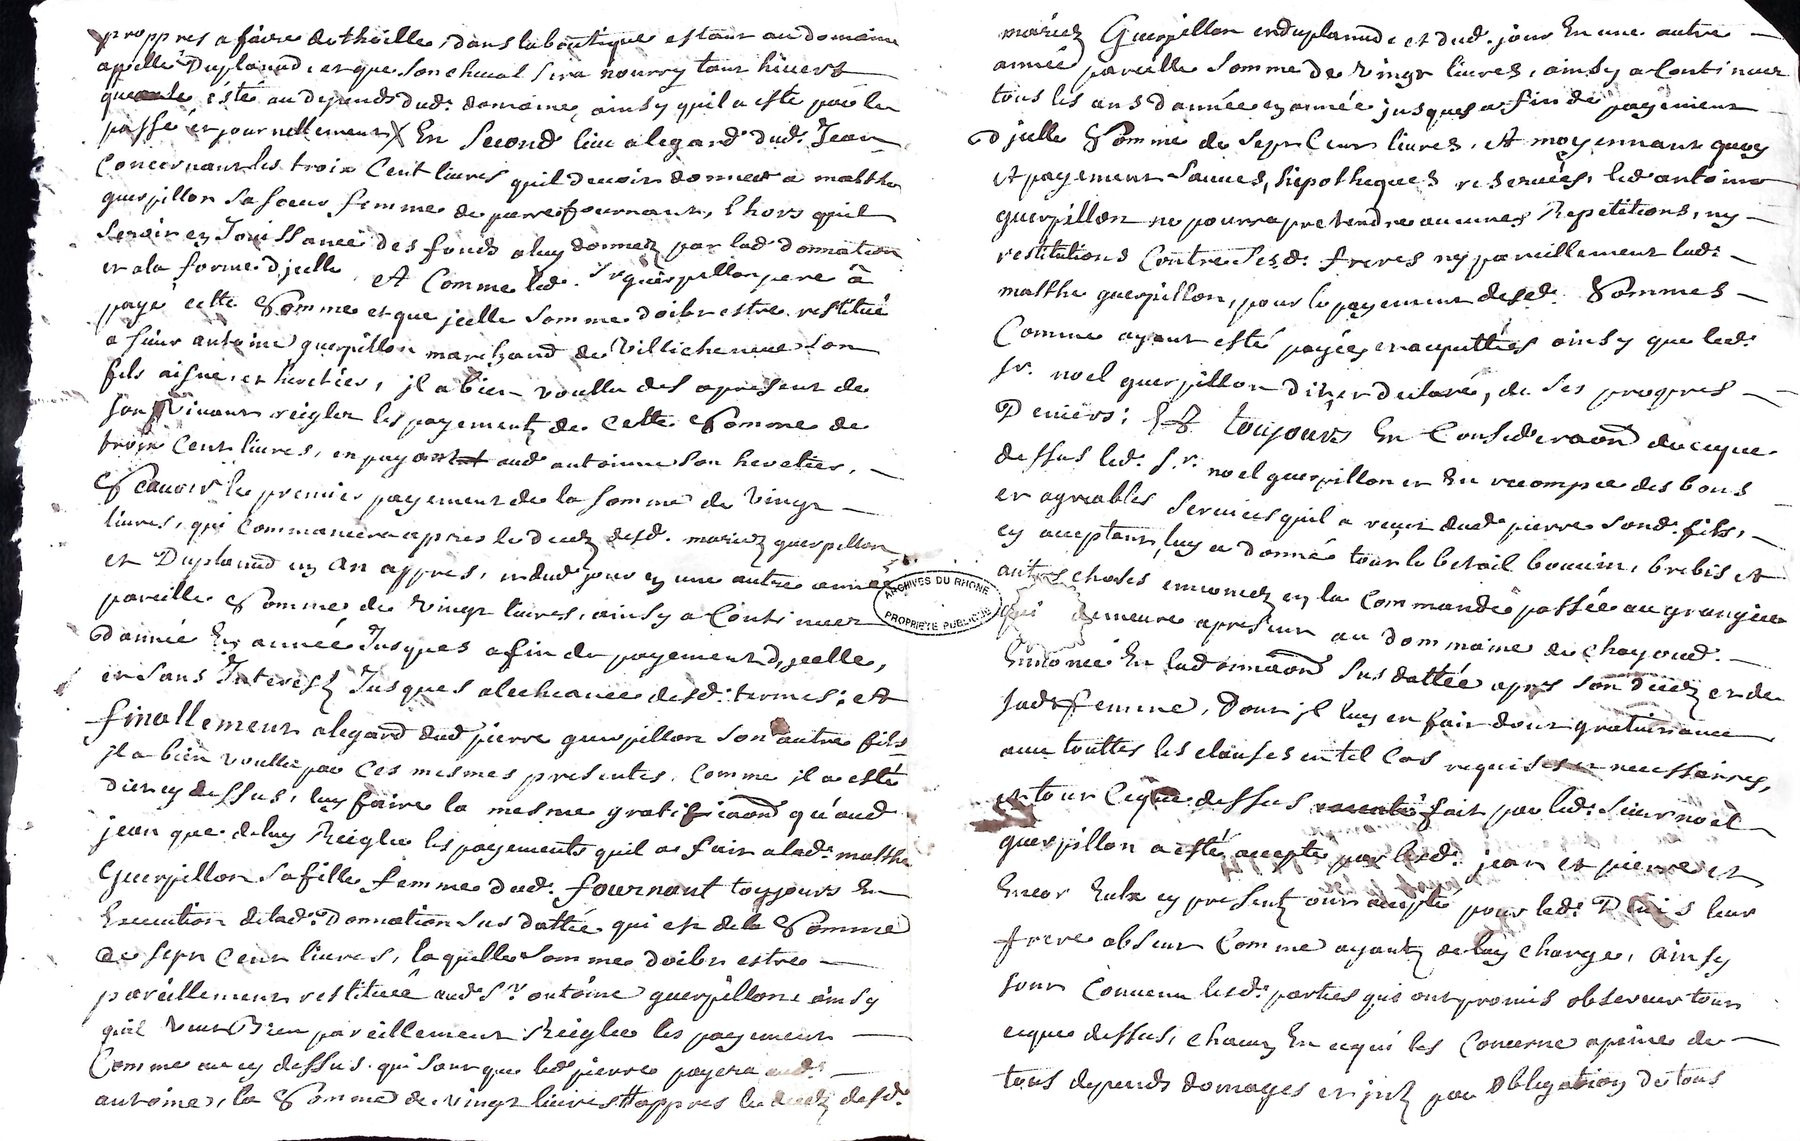 propres a faire de thaille, dans la boutique estant au domaine
apellé Duplanud, et que son cheval sera nourry tant hivert
que esté au depends dud. domaine, ainsy quil a esté par le
passé et journellement X En second lieu a legard dud. Jean
Concernant les trois Cent livres quil devoit donner a matthe
guerpillon sa soeur femme de pierre fournant, lhors quil
seroit en Jouissance des fonds a luy donnez par lad. donnation
et a la forme d'jcelle, Et Comme led. Sr guerpillon pere à
payé cette Somme et que jcelle somme doibt estre restitué
a sieur antoine guerpillon marchand de Villecheneve son
fils aisne, et heretier, jl a bien voullu des apresent de
son Vivant reigler les payementz de Cette Somme de
trois Cent livres, en payant aud antoinne son heretier,
Scavoir le premier payement de la somme de vingt
livres, qui Commancera apres le decez desd. mariez guerpillon
et Duplanud en An appres, et dud jour en une autre année
pareille Somme de vingt livres, ainsy a Continuer
D'année En année Jusques a fin de payement d'jcelle,
et sans Interestz Jusques a lecheance desd. termes; et
finallement a legard dud pierre guerpillon son autre fils
jl a bien voullu par Ces mesmes presentes, Comme jl a esté
dit cy dessus, luy faire la mesme gratificaon qu'aud
jean que de luy Reigler les payements quil a fait a lad. matthe
Guerpillon sa fille femme dud. fournant toujours En
Execution de lad. Donnation sus dattée qui est de la Somme
de sept Cent livres, laquelle somme doibt estre
pareillement restituée aud Sr antoine guerpillon, ainsy
quil veut Bien pareillement Reigler les payement
Comme au cy dessus. qui sont que led pierre payera aud.
antoine, la Somme de vingt livres appres le decez desd.
mariez Guerpillon et duplanud, et dud. jour En une autre
année pareille somme de vingt livres, ainsy a Continuer
tous les ans d'année en année jusques a fin de payement
d'jcelle Somme de sept Cent livres, et moyennant quoy
et payement sauves, hipotheques reservées, led antoine
guerpillon ne pourra pretendre aucunes Repetitions, ny
restitutions Contre sesd. freres ny pareillement lad.
matthe guerpillon, pour le payement desd. Sommes
Comme ayant esté payées et acquittées ainsy que led.
Sr. noel guerpillon dit et declaré, de ses propres
Deniers; Et toujours En Consideraon de ce que
dessus led. Sr. noel guerpillon et En recompce des bons
et agreables services quil a reçut dud. pierre sond. fils,
cy acceptant, luy a donné tout le betail bouvin, brebis et
autres choses enoncez en la Commande passée au granger
qui demeure apresent au dommaine de Chayoud.
Ennoncé En lad donnaon sus dattée apres son decez et de
sad. femme, Dont jl luy en fait dont gratuitance
avec touttes les clauses en tel Cas requises et necessaires,
et tout Ceque dessus fait par led. sieur noel
guerpillon a esté accepté par lesd. jean et pierre et
Encor Eulx cy presentz ont accepté pour led. Denis leur
frere absent Comme ayantz de luy charge, ainsy
sont Convenu lesd. parties qui ont promis observer tout
ceque dessus, chacun En cequi les Concerne a peine de
tous depends domages et jntz par obligation de tous
ARCHIVES DU RHONE
PROPRIETE PUBLIQUE